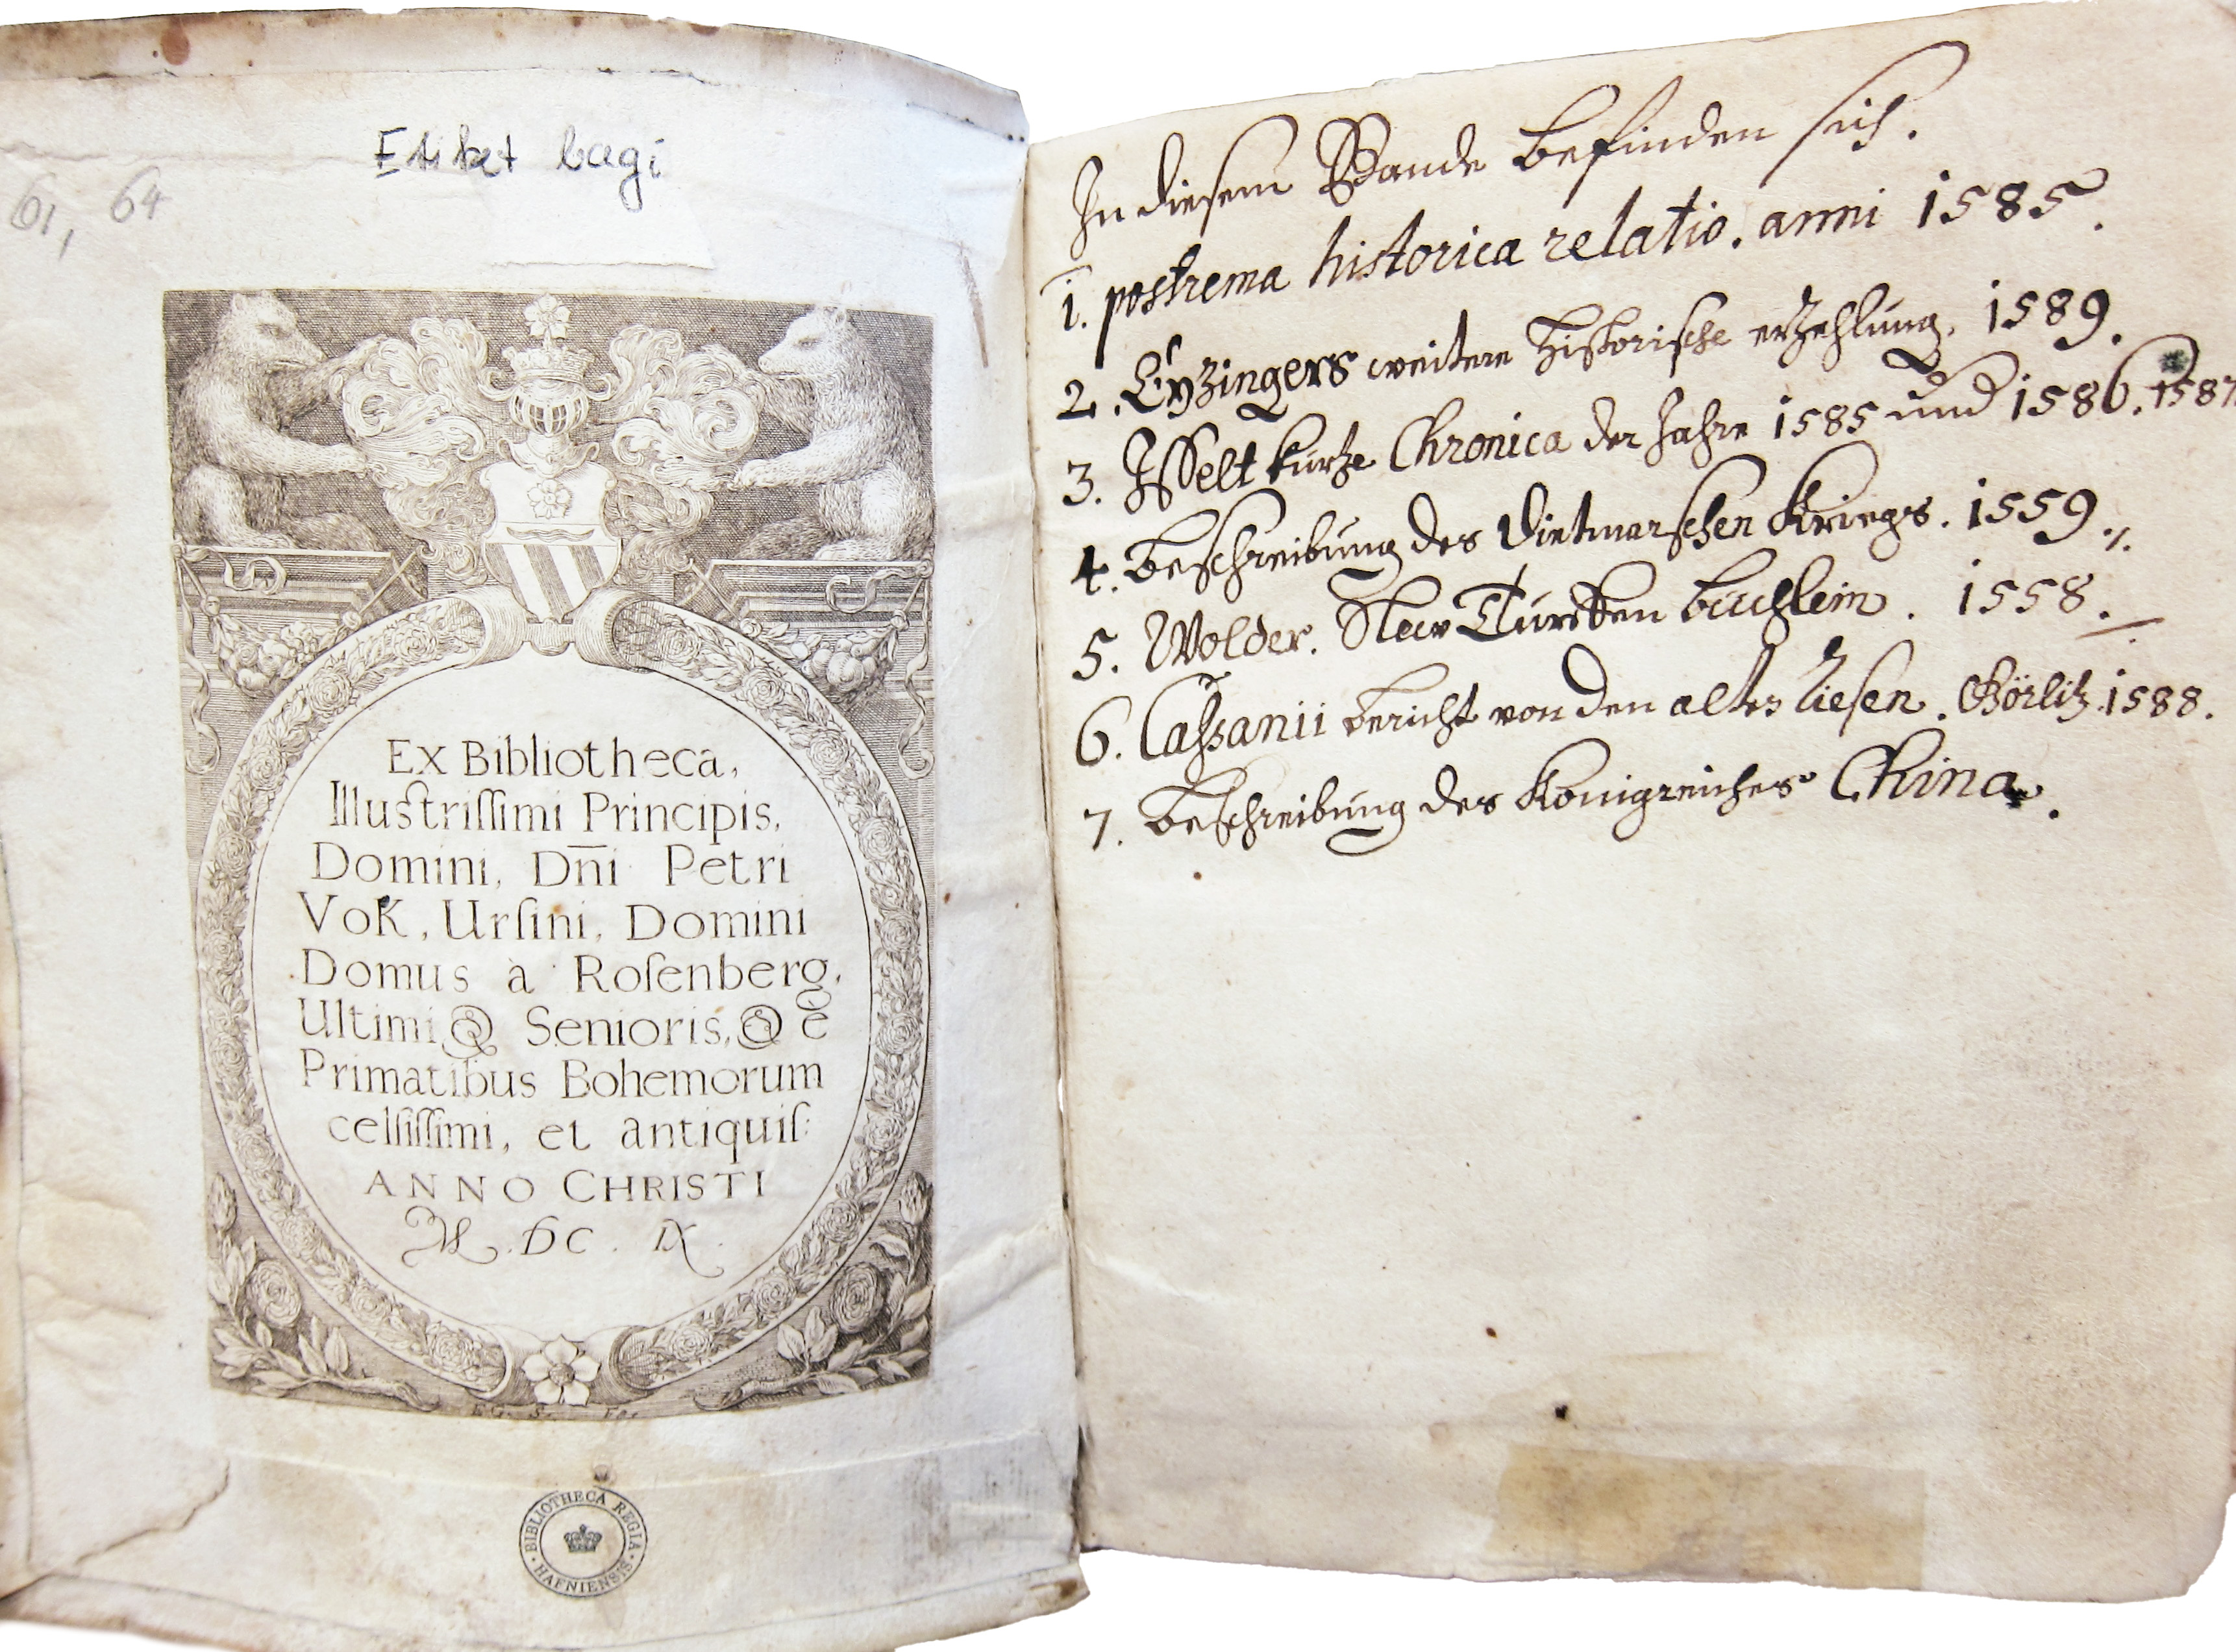 Etiket bagi
61, 64
Ex Bibliotheca,
Illustrissimi Principis,
Domini, Dn̄i Petri
Vok, Ursini, Domini
Domus à Rosenberg,
Ultimi & Senioris, & è
Primatibus Bohemorum
celsissimi, et antiquis:
ANNO CHRISTI
M. DC. IX.
BIBLIOTHECA REGIA HAFNIENSIS
In diesem Bande befinden sich.
1. postrema historica relatio. anni 1585.
2. Eyzingers weitere Historische erzehlung. 1589.
3. Isselt kurtze Chronica der Jahre 1585 und 1586. 1587
4. Beschreibung des Dietmarschen Kriegs. 1559.
5. Wolder. New Türcken büchlein. 1558.
6. Caßanii bericht von den alten Riesen. Görlitz 1588.
7. Beschreibung des Königreiches China.